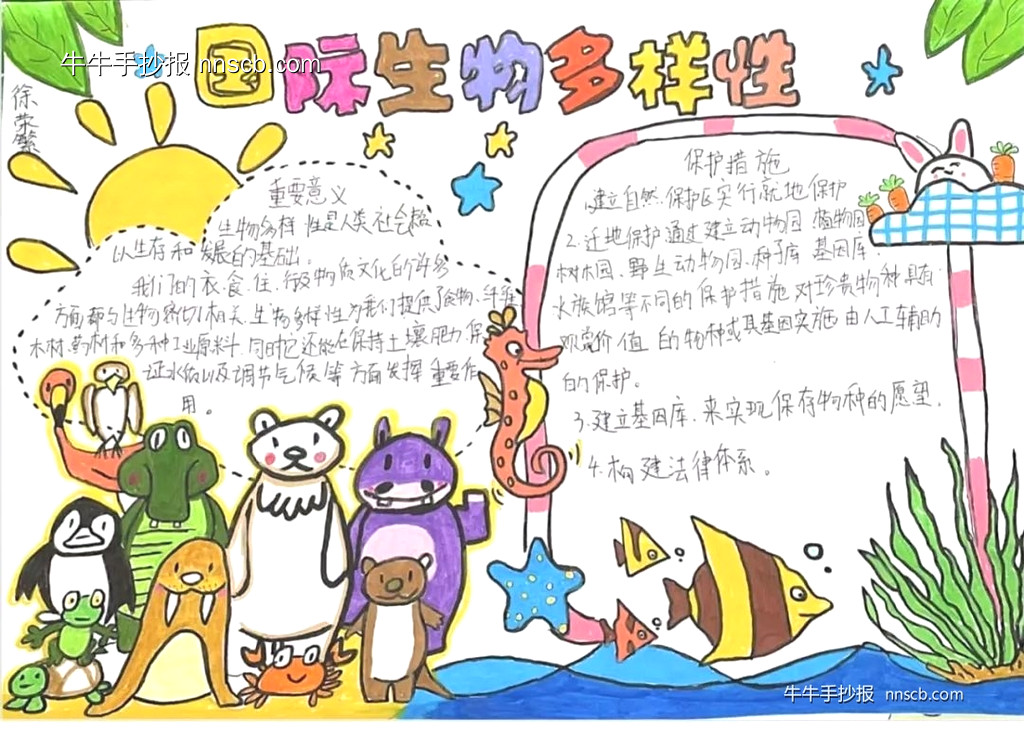 牛牛手抄报 nnscb.com
国际生物多样性
徐荣繁
重要意义
生物多样性是人类社会赖
以生存和发展的基础。
我们的衣、食、住、行及物质文化的许多
方面都与生物密切相关。生物多样性为我们提供了食物、纤维
木材、药材和多种工业原料。同时它还能在保持土壤肥力、保
证水质以及调节气候等方面发挥重要作
用。
保护措施
建立自然保护区实行就地保护
2.迁地保护通过建立动物园、植物园
树木园、野生动物园、种子库、基因库、
水族馆等不同的保护措施对珍贵物种具有
观赏价值的物种或其基因实施由人工辅助
的保护。
3.建立基因库,来实现保存物种的愿望。
4.构建法律体系。
牛牛手抄报 nnscb.com